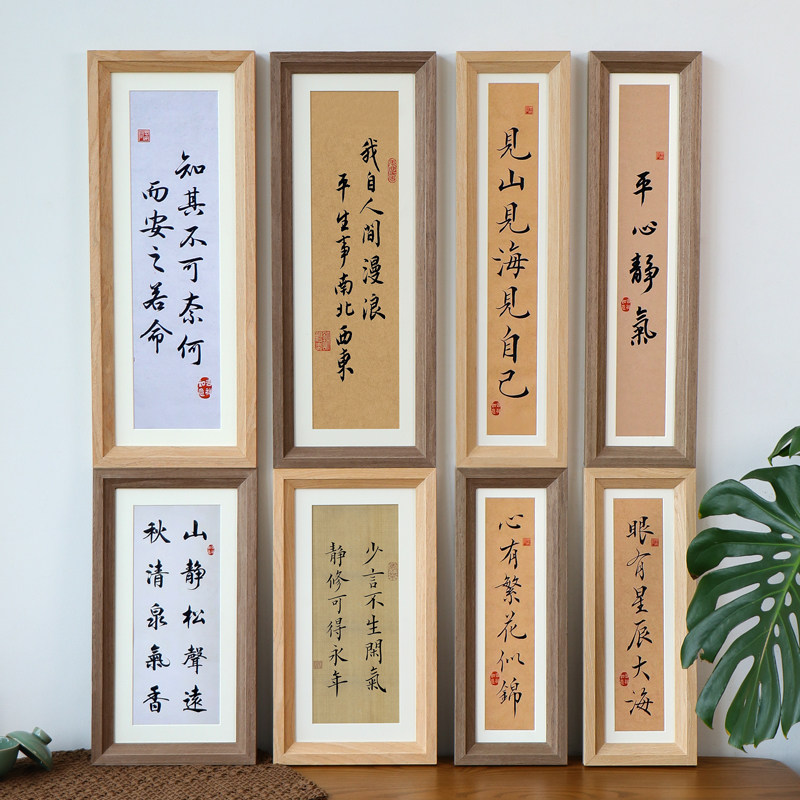 知其不可奈何
而安之若命
我自人间漫浪
平生事南北西東
見山見海見自己
平心靜氣
山靜松聲遠
秋清泉氣香
少言不生閑氣
靜修可得永年
心有繁花似錦
眼有星辰大海